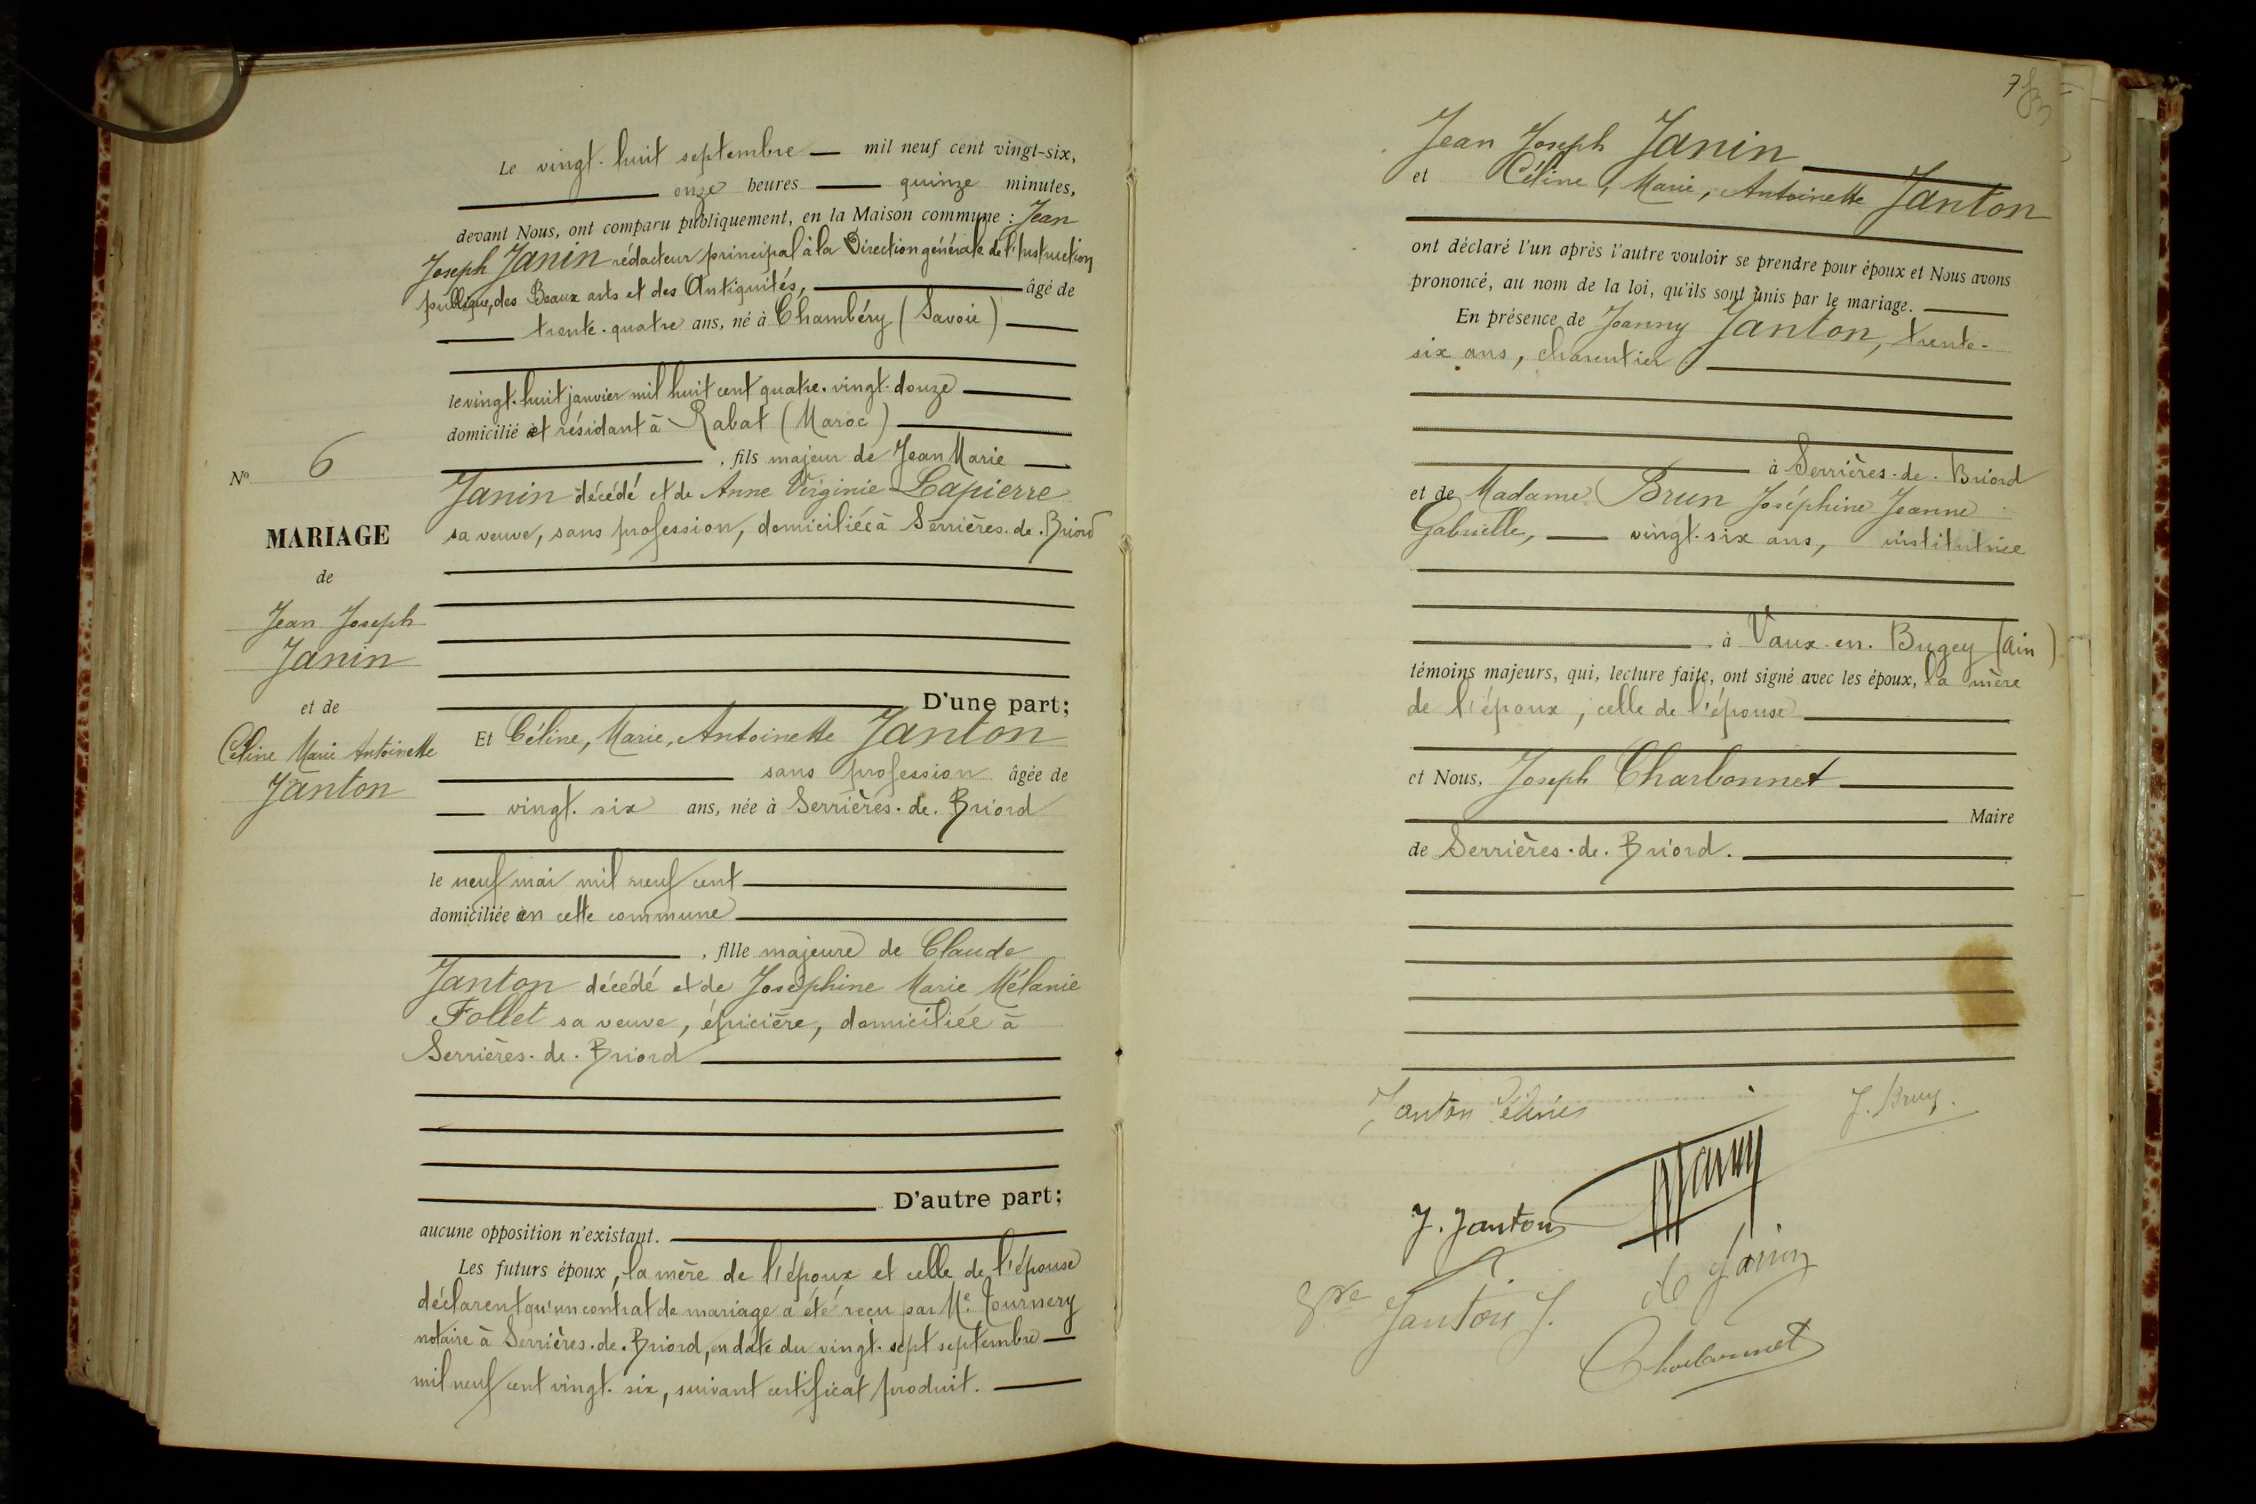 Le vingt-huit septembre mil neuf cent vingt-six,
onze heures quinze minutes,
devant Nous, ont comparu publiquement, en la Maison commune : Jean
Joseph Janin rédacteur principal à la Direction générale de l'Instruction
publique, des Beaux arts et des Antiquités, âgé de
trente-quatre ans, né à Chambéry (Savoie)
le vingt-huit janvier mil huit cent quatre-vingt-douze
domicilié et résidant à Rabat (Maroc)
, fils majeur de Jean Marie
Janin décédé et de Anne Virginie Lapierre
sa veuve, sans profession, domiciliée à Serrières-de-Briord
No 6
MARIAGE
de
Jean Joseph
Janin
et de
Céline Marie Antoinette
Janton
D'une part;
Et Céline, Marie, Antoinette Janton
sans profession âgée de
vingt-six ans, née à Serrières-de-Briord
le neuf mai mil neuf cent
domiciliée en cette commune
, fille majeure de Claude
Janton décédé et de Joséphine Marie Mélanie
Follet sa veuve, épicière, domiciliée à
Serrières-de-Briord
D'autre part;
aucune opposition n'existant.
Les futurs époux, la mère de l'époux et celle de l'épouse
déclarent qu'un contrat de mariage a été reçu par Me Tournery
notaire à Serrières-de-Briord, en date du vingt-sept septembre
mil neuf cent vingt-six, suivant certificat produit.
Jean Joseph Janin
et Céline, Marie, Antoinette Janton
ont déclaré l'un après l'autre vouloir se prendre pour époux et Nous avons
prononcé, au nom de la loi, qu'ils sont unis par le mariage.
En présence de Joanny Janton, trente-
six ans, charcutier
à Serrières-de-Briord
et de Madame Brun Joséphine Jeanne
Gabrielle, vingt-six ans, institutrice
à Vaux-en-Bugey (Ain)
témoins majeurs, qui, lecture faite, ont signé avec les époux, la mère
de l'époux, celle de l'épouse
et Nous, Joseph Charbonnet
Maire
de Serrières-de-Briord.
Janton Céline
J. Brun
J. Janton
Janin
Vve Janton J.
Charbonnet